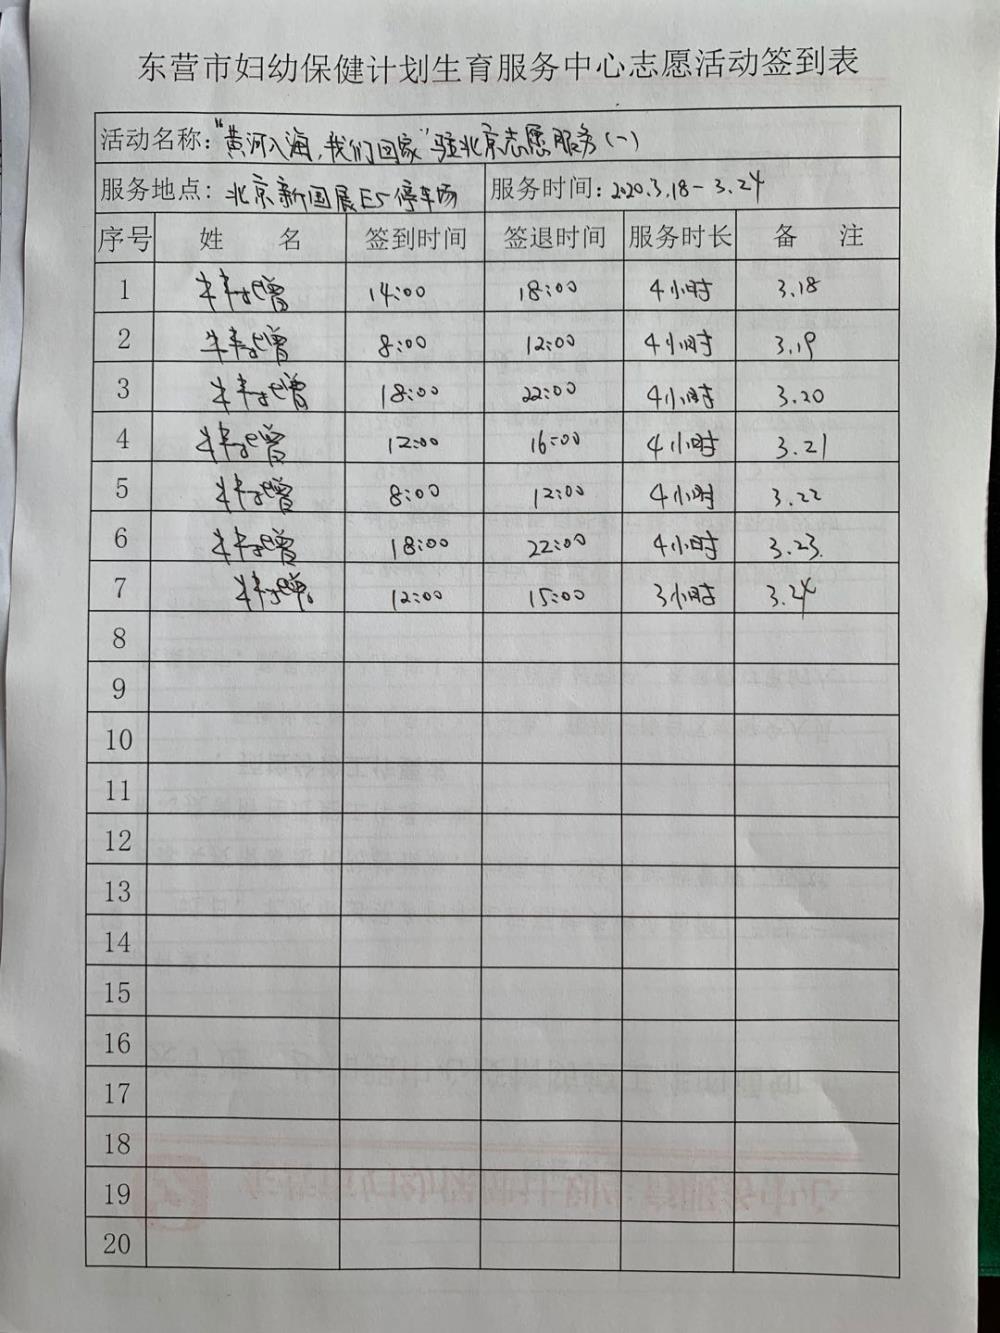 东营市妇幼保健计划生育服务中心志愿活动签到表
活动名称:“黄河入海,我们回家”驻北京志愿服务(一)
服务地点: 北京新国展E5停车场 服务时间: 2020.3.18-3.24
序号 姓 名 签到时间 签退时间 服务时长 备 注
1 14:00 18:00 4小时 3.18
2 8:00 12:00 4小时 3.19
3 18:00 22:00 4小时 3.20
4 12:00 16:00 4小时 3.21
5 8:00 12:00 4小时 3.22
6 18:00 22:00 4小时 3.23
7 12:00 15:00 3小时 3.24
8
9
10
11
12
13
14
15
16
17
18
19
20